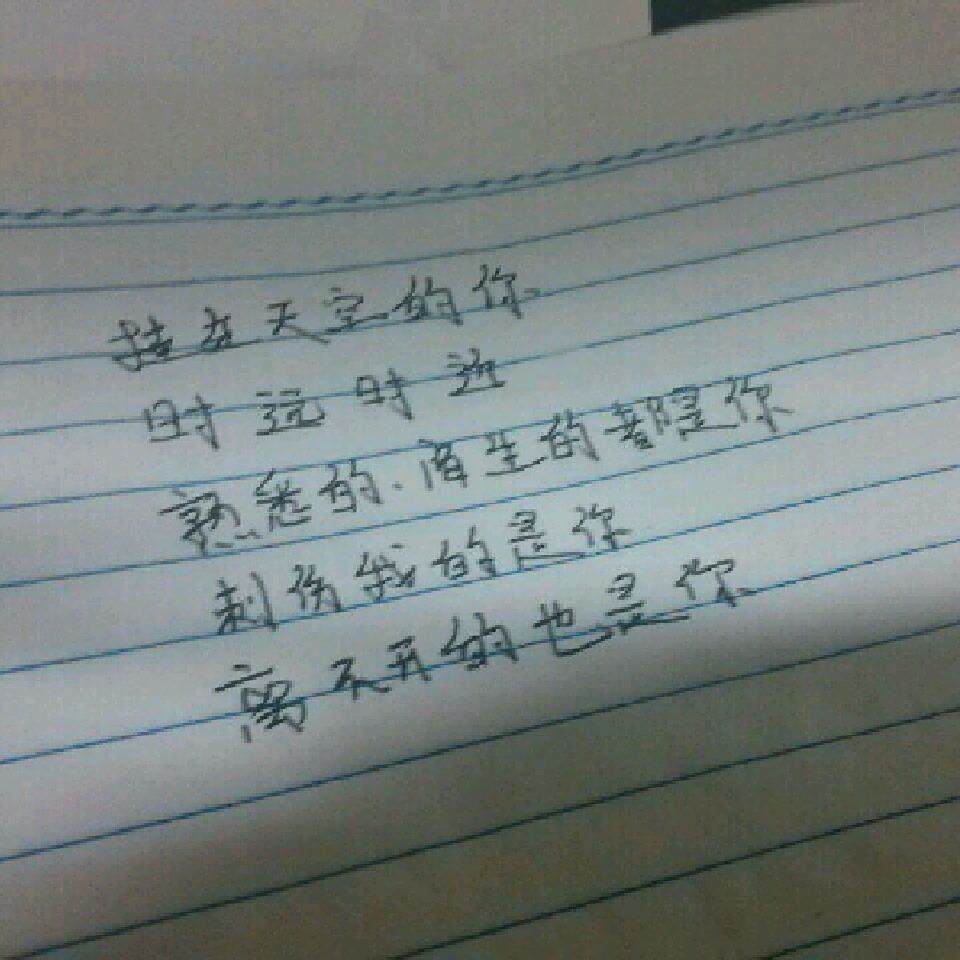 挂在天空的你
时远时近
熟悉的.陌生的都是你
刺伤我的是你
离不开的也是你